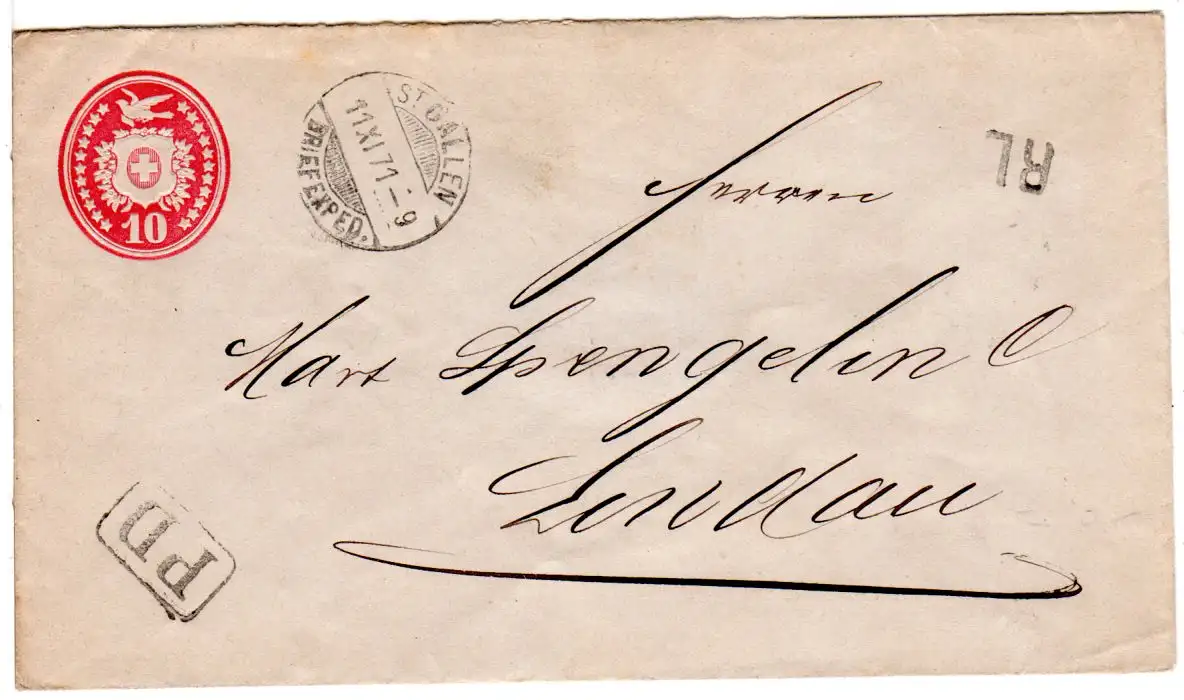 10
ST GALLEN
11 XI 71 - 9
BRIEF EXPED.
RL
Herren
Mart Spengelin C
Lindau
PD